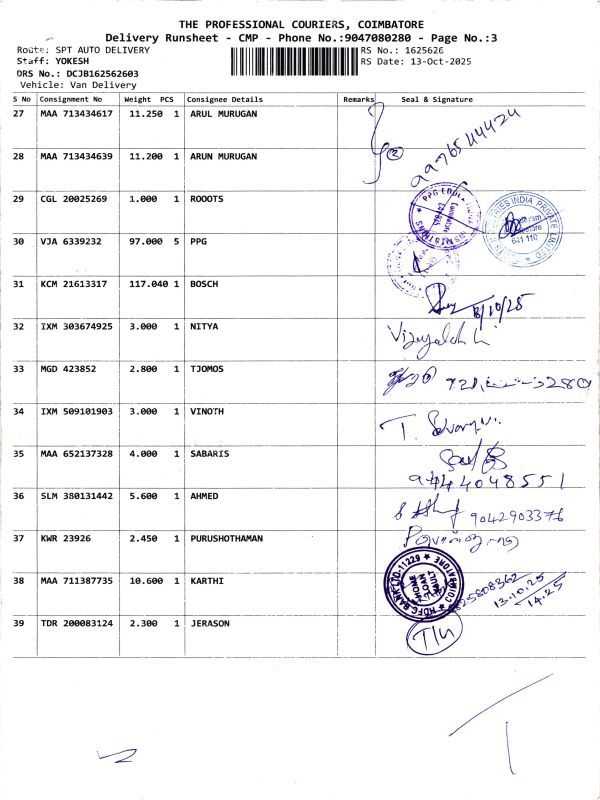 THE PROFESSIONAL COURIERS, COIMBATORE
Delivery Runsheet - CMP - Phone No.:9047080280 - Page No.:3
Route: SPT AUTO DELIVERY RS No.: 1625626
Staff: YOKESH RS Date: 13-Oct-2025
DRS No.: DCJB162562603
Vehicle: Van Delivery
S No Consignment No Weight PCS Consignee Details Remarks Seal & Signature
27 MAA 713434617 11.250 1 ARUL MURUGAN
28 MAA 713434639 11.200 1 ARUN MURUGAN
29 CGL 20025269 1.000 1 ROOOTS
30 VJA 6339232 97.000 5 PPG
641 110
31 KCM 21613317 117.040 1 BOSCH
13/10/25
32 IXM 303674925 3.000 1 NITYA
33 MGD 423852 2.800 1 TJOMOS
34 IXM 509101903 3.000 1 VINOTH
35 MAA 652137328 4.000 1 SABARIS
9444048551
36 SLM 380131442 5.600 1 AHMED
9042903376
37 KWR 23926 2.450 1 PURUSHOTHAMAN
38 MAA 711387735 10.600 1 KARTHI
13.10.25
14.25
39 TDR 200083124 2.300 1 JERASON